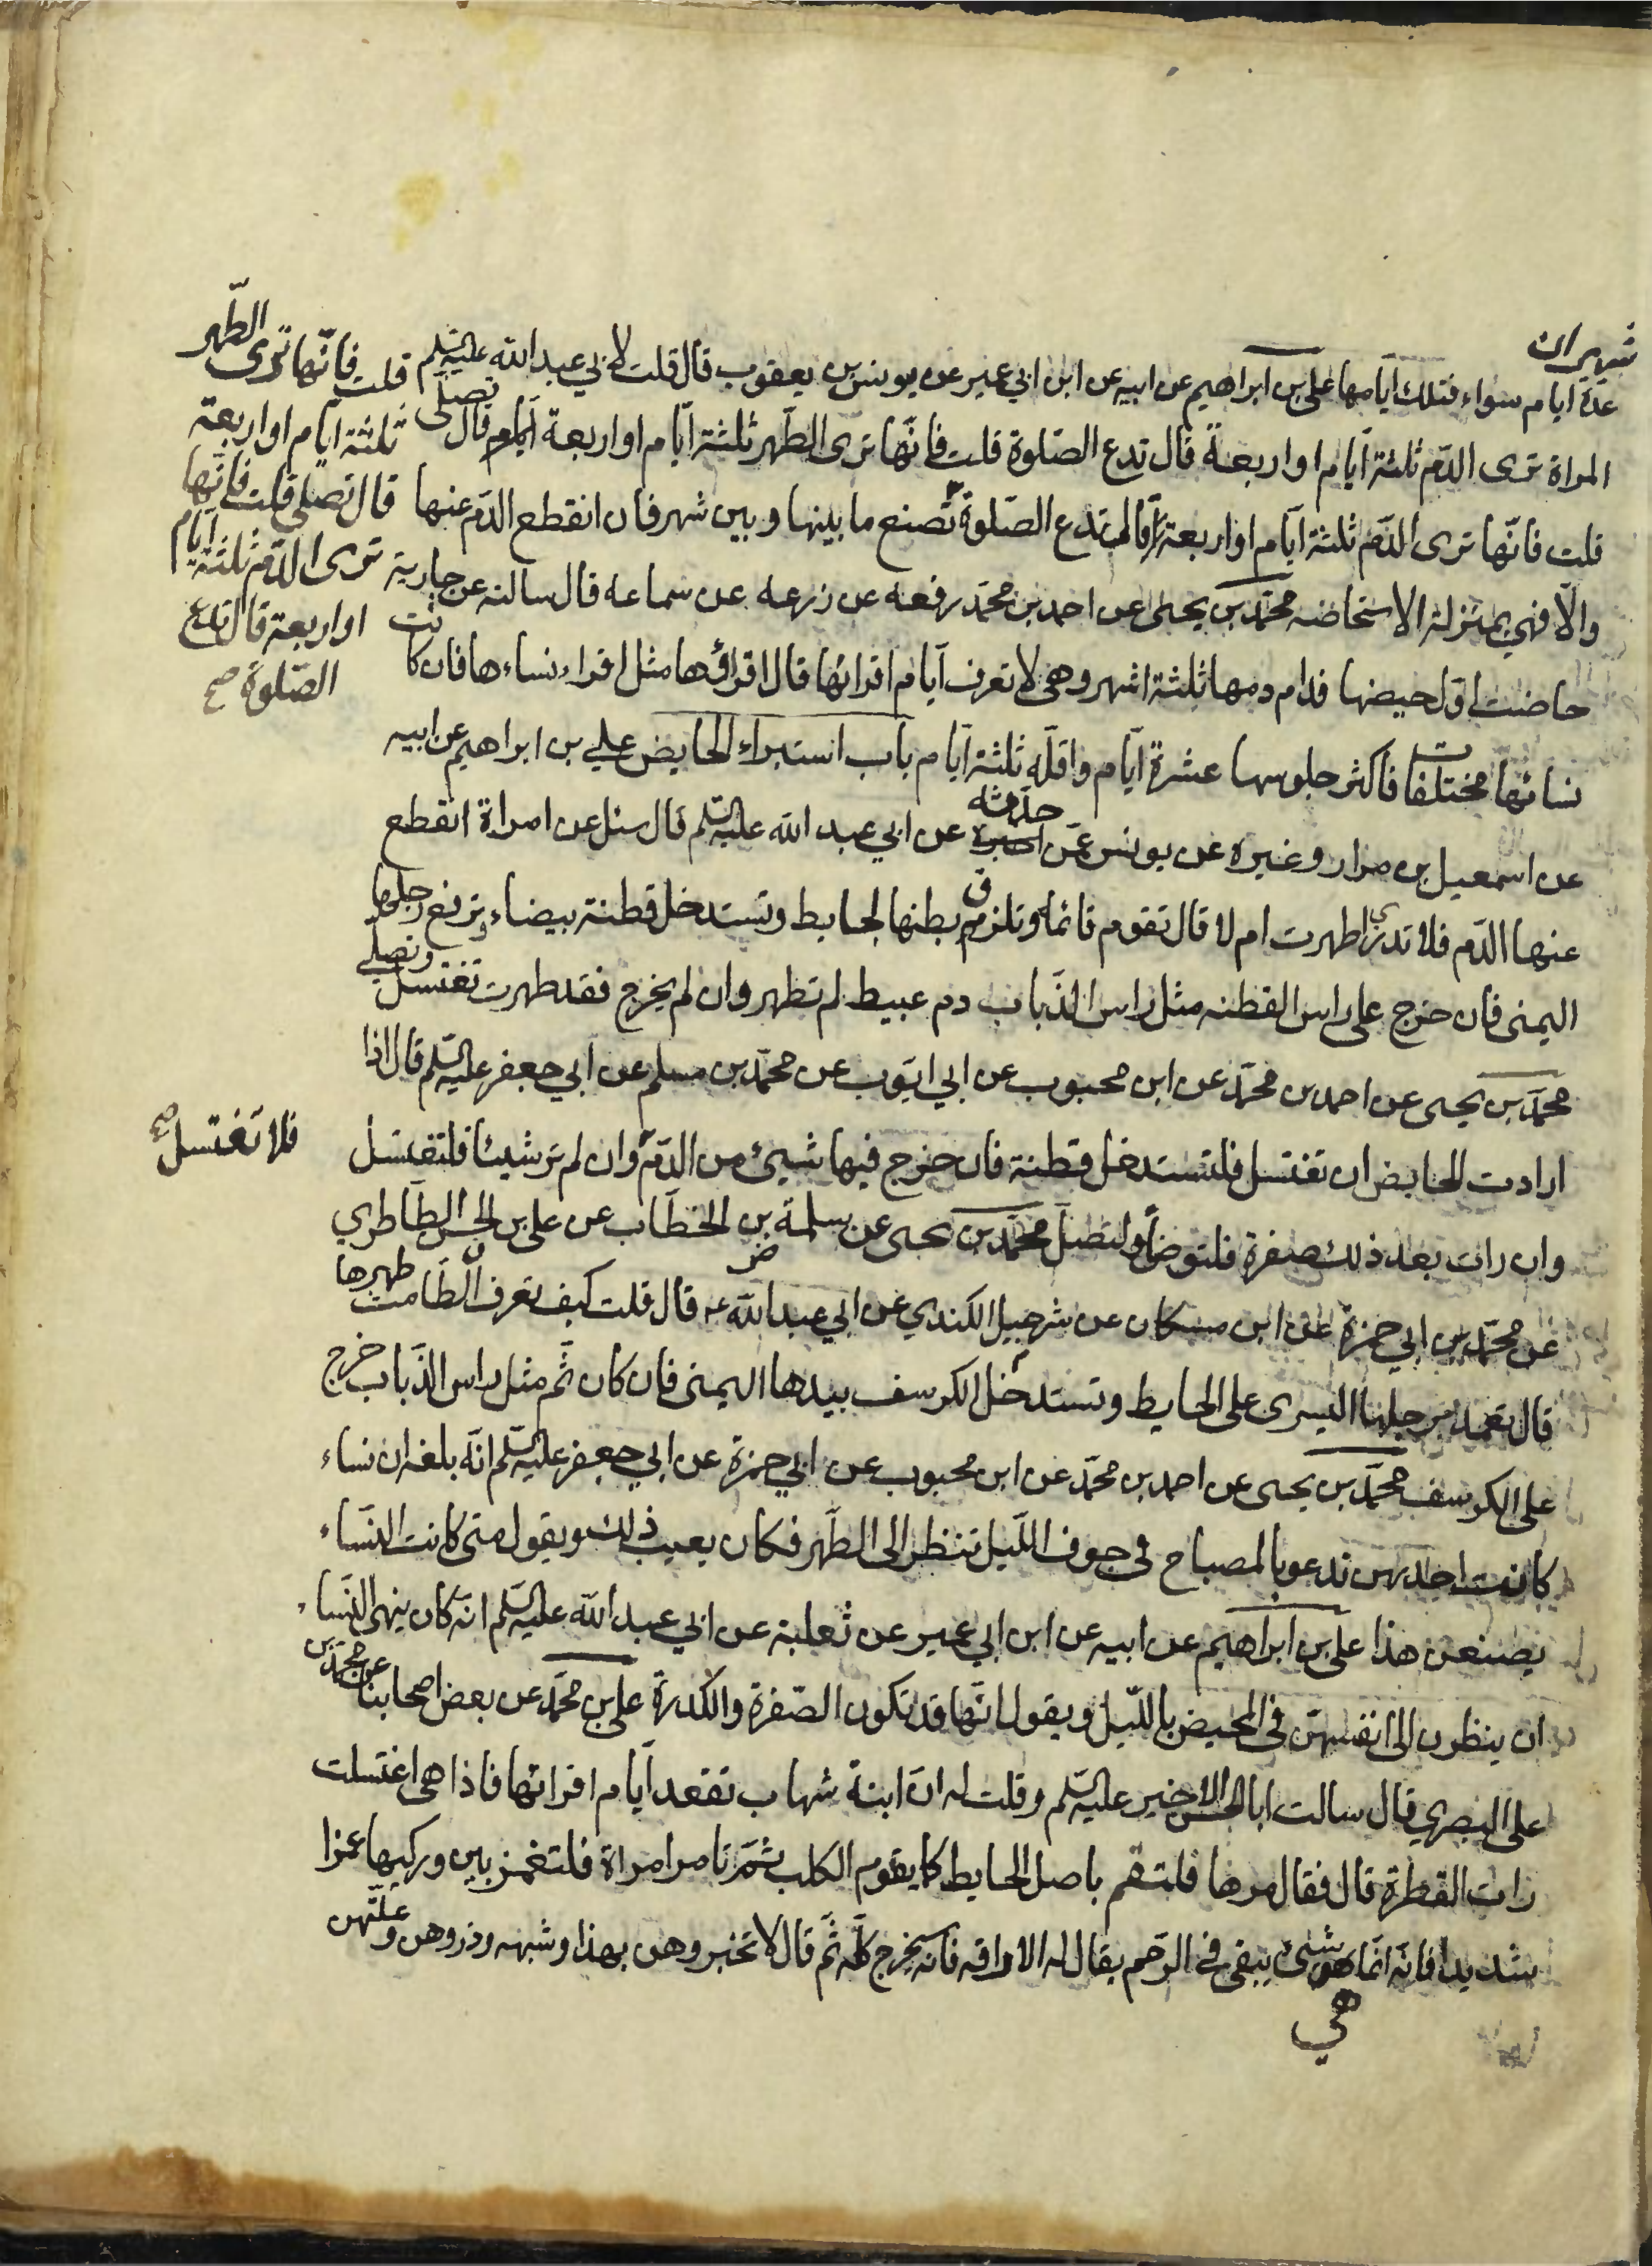 شهران
عدة ايام سواء فتلك ايامها علي بن ابراهيم عن ابيه عن ابن ابي عمير عن يونس بن يعقوب قال قلت لابي عبد الله عليه السلم
المراة ترى الدم ثلثة ايام او اربعة قال تدع الصلوة قلت فانها ترى الطهر ثلثة ايام او اربعة ايام قال تصلي
قلت فانها ترى الدم ثلثة ايام او اربعة قال تدع الصلوة تصنع ما بينها وبين شهر فان انقطع الدم عنها
والا فهي بمنزلة الاستحاضه محمد بن يحيى عن احمد بن محمد رفعه عن زرعه عن سماعه قال سالته عن جارية
حاضت اول حيضها فدام دمها ثلثة اشهر وهي لا تعرف ايام اقرائها قال اقراؤها مثل اقراء نساءها فان كانت
نسائها مختلفات فاكثر جلوسها عشرة ايام واقله ثلثة ايام باب استبراء الحايض علي بن ابراهيم عن ابيه
عن اسمعيل بن مرار وغيره عن يونس عمن حدثه عن ابي عبد الله عليه السلم قال سئل عن امراة انقطع
عنها الدم فلا تدري اطهرت ام لا قال تقوم قائما وتلزق بطنها بحايط وتستدخل قطنة بيضاء وترفع رجلها
اليمنى فان خرج على راس القطنه مثل راس الذباب دم عبيط لم تطهر وان لم يخرج فقد طهرت تغتسل وتصلي
محمد بن يحيى عن احمد بن محمد عن ابن محبوب عن ابي ايوب عن محمد بن مسلم عن ابي جعفر عليه السلم قال اذا
ارادت الحايض ان تغتسل فلتستدخل قطنة فان خرج فيها شيئ من الدم وان لم تر شيئا فلتغتسل
وان رات بعد ذلك صفرة فلتوضأ ولتصل محمد بن يحيى عن سلمة بن الخطاب عن علي بن الحسن الطاطري
عن محمد بن ابي حمزة عن ابن مسكان عن شرحبيل الكندي عن ابي عبد الله ع قال قلت كيف تعرف الطامث طهرها
قال تعمد برجلها اليسرى على الحايط وتستدخل الكرسف بيدها اليمنى فان كان ثم مثل راس الذباب خرج
على الكرسف محمد بن يحيى عن احمد بن محمد عن ابن محبوب عن ابي حمزة عن ابي جعفر عليه السلم انه بلغه ان نساء
كانت احديهن تدعو بالمصباح في جوف الليل تنظر الى الطهر فكان يعيب ذلك ويقول متى كانت النساء
يصنعن هذا علي بن ابراهيم عن ابيه عن ابن ابي عمير عن ثعلبة عن ابي عبد الله عليه السلم انه كان ينهى النساء
ان ينظرن الى انفسهن في المحيض بالليل ويقول انها قد تكون الصفرة والكدرة علي بن محمد عن بعض اصحابنا عن محمد بن
علي البصري قال سالت ابا الحسن الاخير عليه السلم وقلت له ان ابنة شهاب تقعد ايام اقرائها فاذا هي اغتسلت
رات القطرة قال فقال مرها فلتقم باصل الحايط كما يقوم الكلب ثم تامر امراة فلتغمز بين وركيها غمزا
شديدا فانه انما هو شيئ يبقى في الرحم يقال له الاراقه فانه سيخرج كله ثم قال لا تخبروهن بهذا وشبهه وذروهن وعلتهن
قلت فانها ترى الطهر
ثلثة ايام او اربعة
قال تصلي قلت فانها
ترى الدم ثلثة ايام
او اربعة قال تدع
الصلوة صح
فلا تغتسل صح